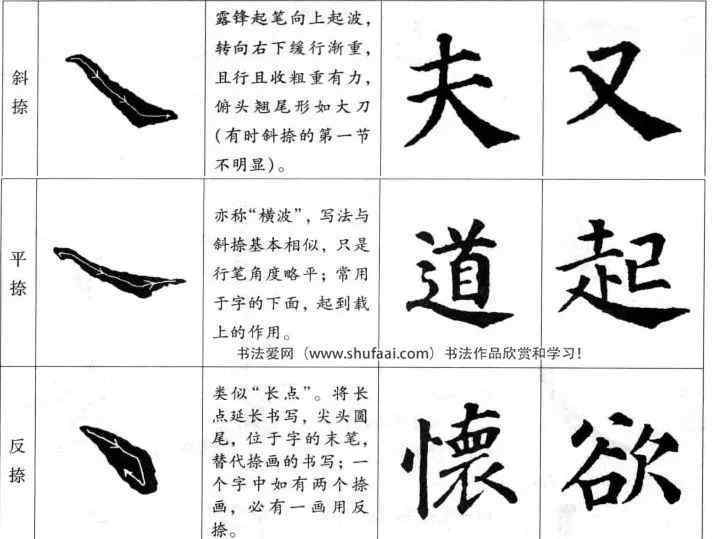 斜捺
露锋起笔向上起波，
转向右下缓行渐重，
且行且收粗重有力，
俯头翘尾形如大刀
(有时斜捺的第一节
不明显)。
夫
又
平捺
亦称“横波”，写法与
斜捺基本相似，只是
行笔角度略平；常用
于字的下面，起到载
上的作用。
道
起
书法爱网（www.shufaai.com）书法作品欣赏和学习！
反捺
类似“长点”。将长
点延长书写，尖头圆
尾，位于字的末笔，
替代捺画的书写；一
个字中如有两个捺
画，必有一画用反
捺。
懷
欲